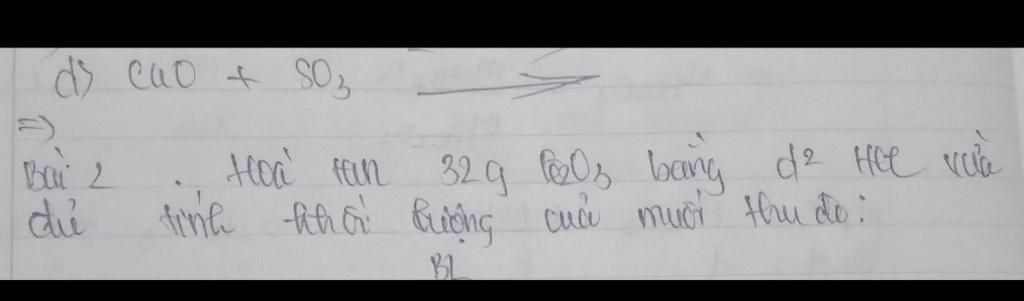 d) CaO + SO3 →
=>
Bài 2 . Hoà tan 32g Fe2O3 bằng d2 HCl vừa
đủ tính khối lượng của muối thu đc:
BL